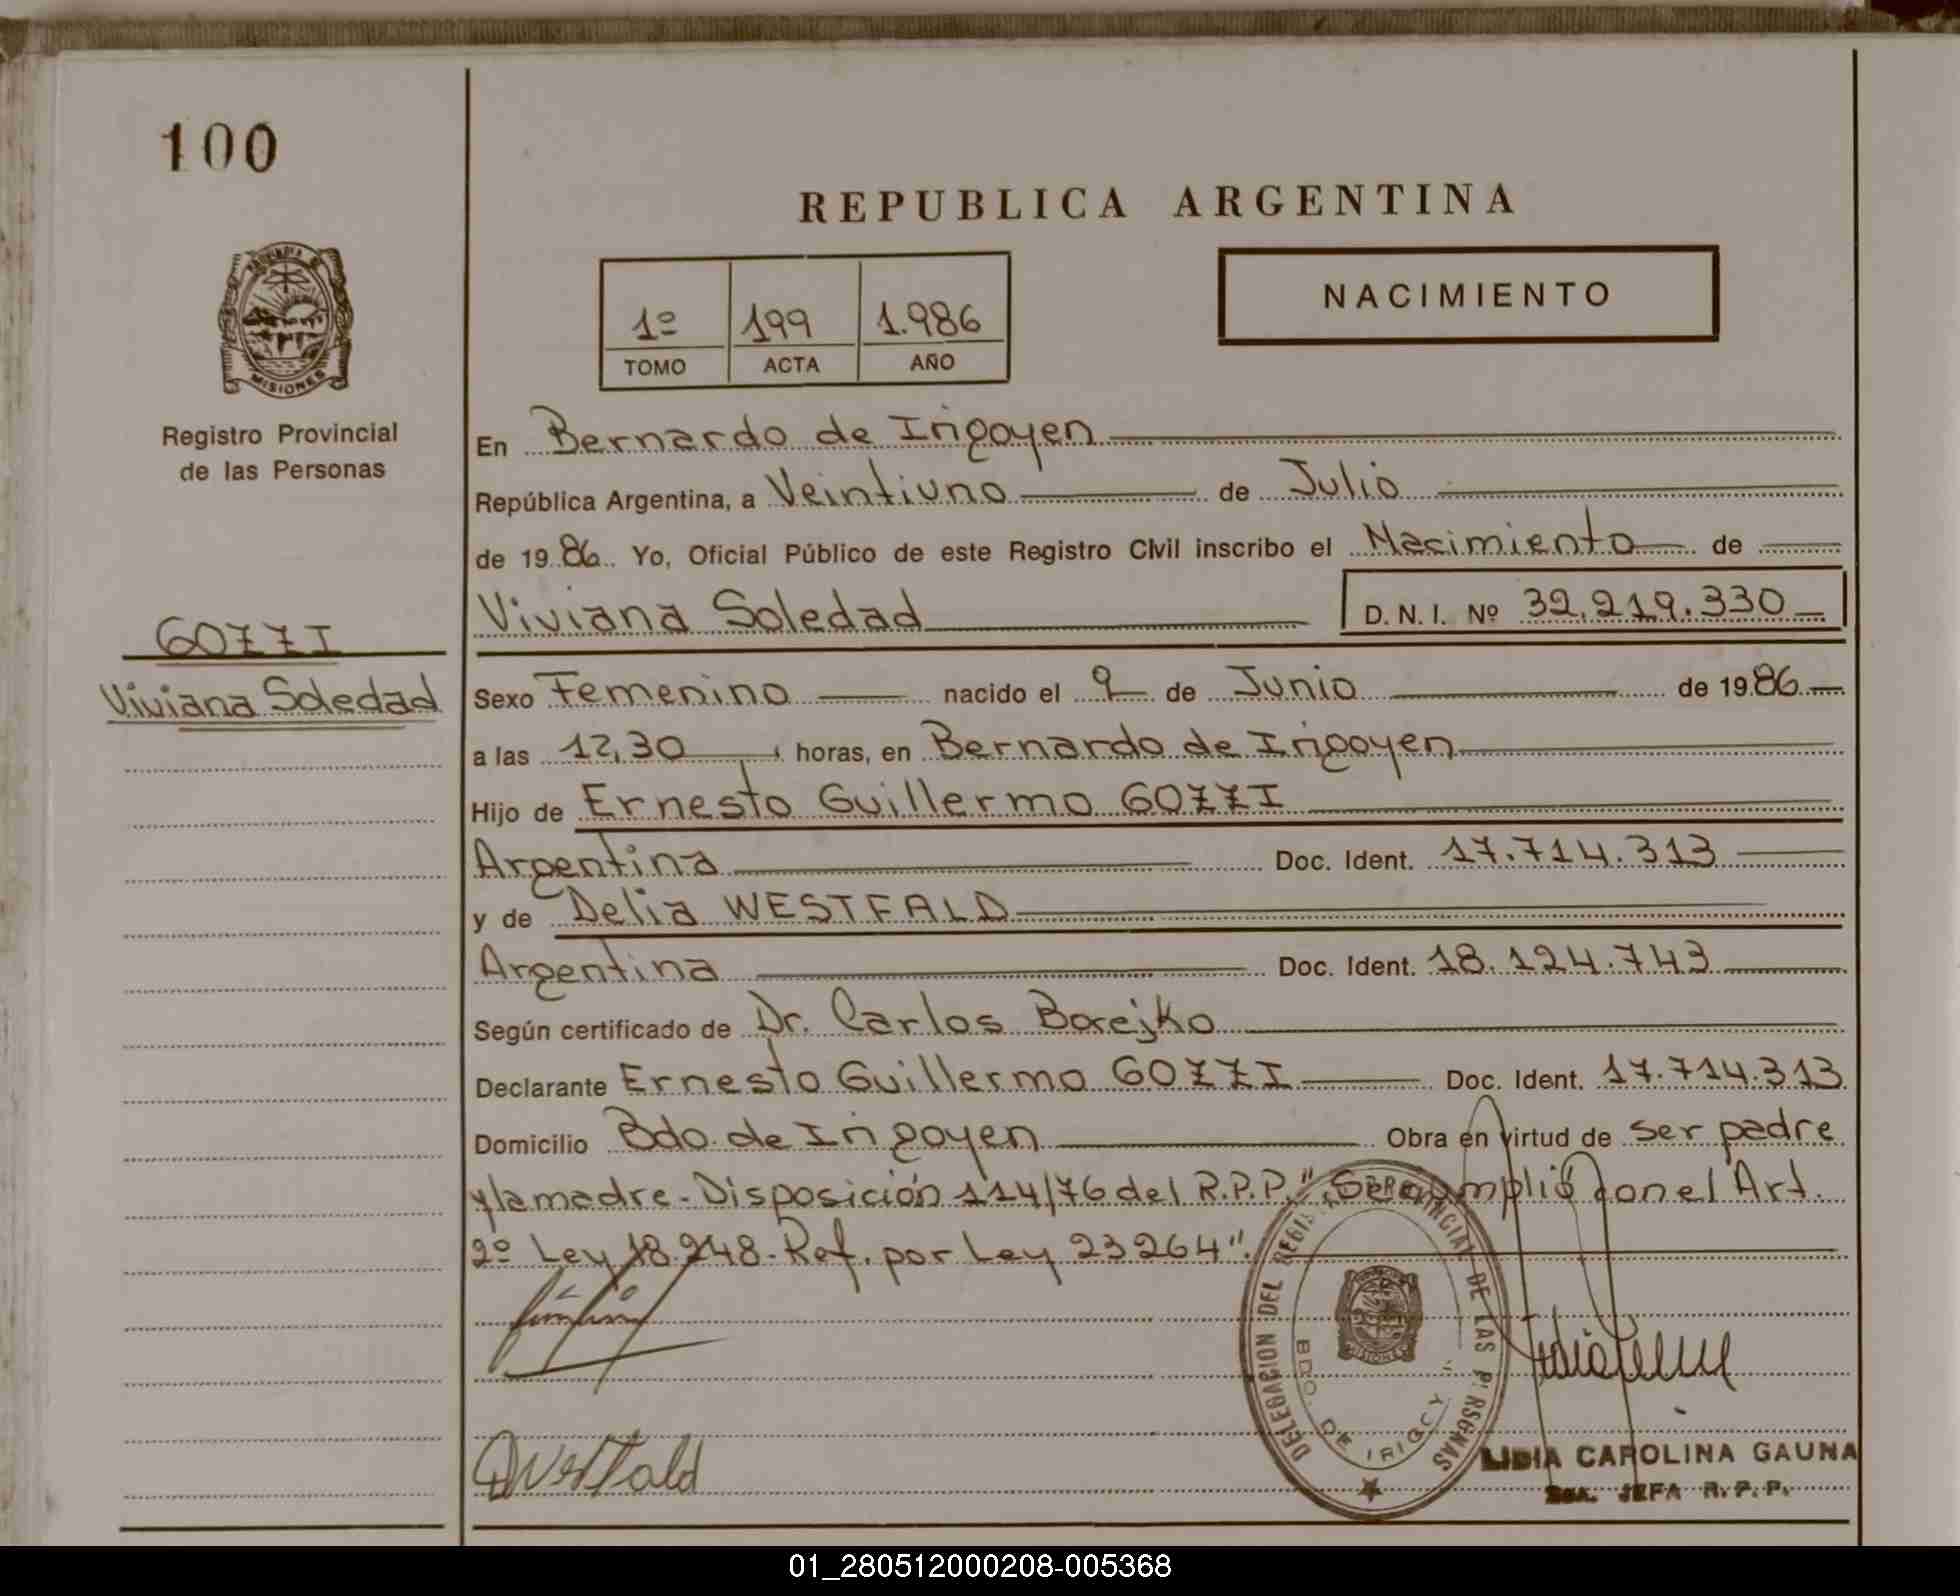 100
REPUBLICA ARGENTINA
NACIMIENTO
1º 199 1.986
TOMO ACTA AÑO
MISIONES
Registro Provincial
de las Personas
GOZZI
Viviana Soledad
En Bernardo de Irigoyen
República Argentina, a Veintiuno de Julio
de 1986 Yo, Oficial Público de este Registro Civil inscribo el Nacimiento de
Viviana Soledad D.N.I. Nº 32.219.330
Sexo Femenino nacido el 9 de Junio de 1986
a las 12,30 horas, en Bernardo de Irigoyen
Hijo de Ernesto Guillermo GOZZI
Argentina Doc. Ident. 17.714.313
y de Delia WESTFALD
Argentina Doc. Ident. 18.124.743
Según certificado de Dr. Carlos Borejko
Declarante Ernesto Guillermo GOZZI Doc. Ident. 17.714.313
Domicilio Bdo. de Irigoyen Obra en virtud de ser padre
y la madre - Disposición 114/76 del R.P.P. "Se cumplió con el Art.
2º Ley 18.248 - Ref. por Ley 23264".
DELEGACION DEL REGISTRO PROVINCIAL DE LAS PERSONAS
BDO. DE IRIGOYEN
MISIONES
DWestfald
LIDIA CAROLINA GAUNA
JEFA R.P.P.
01_280512000208-005368